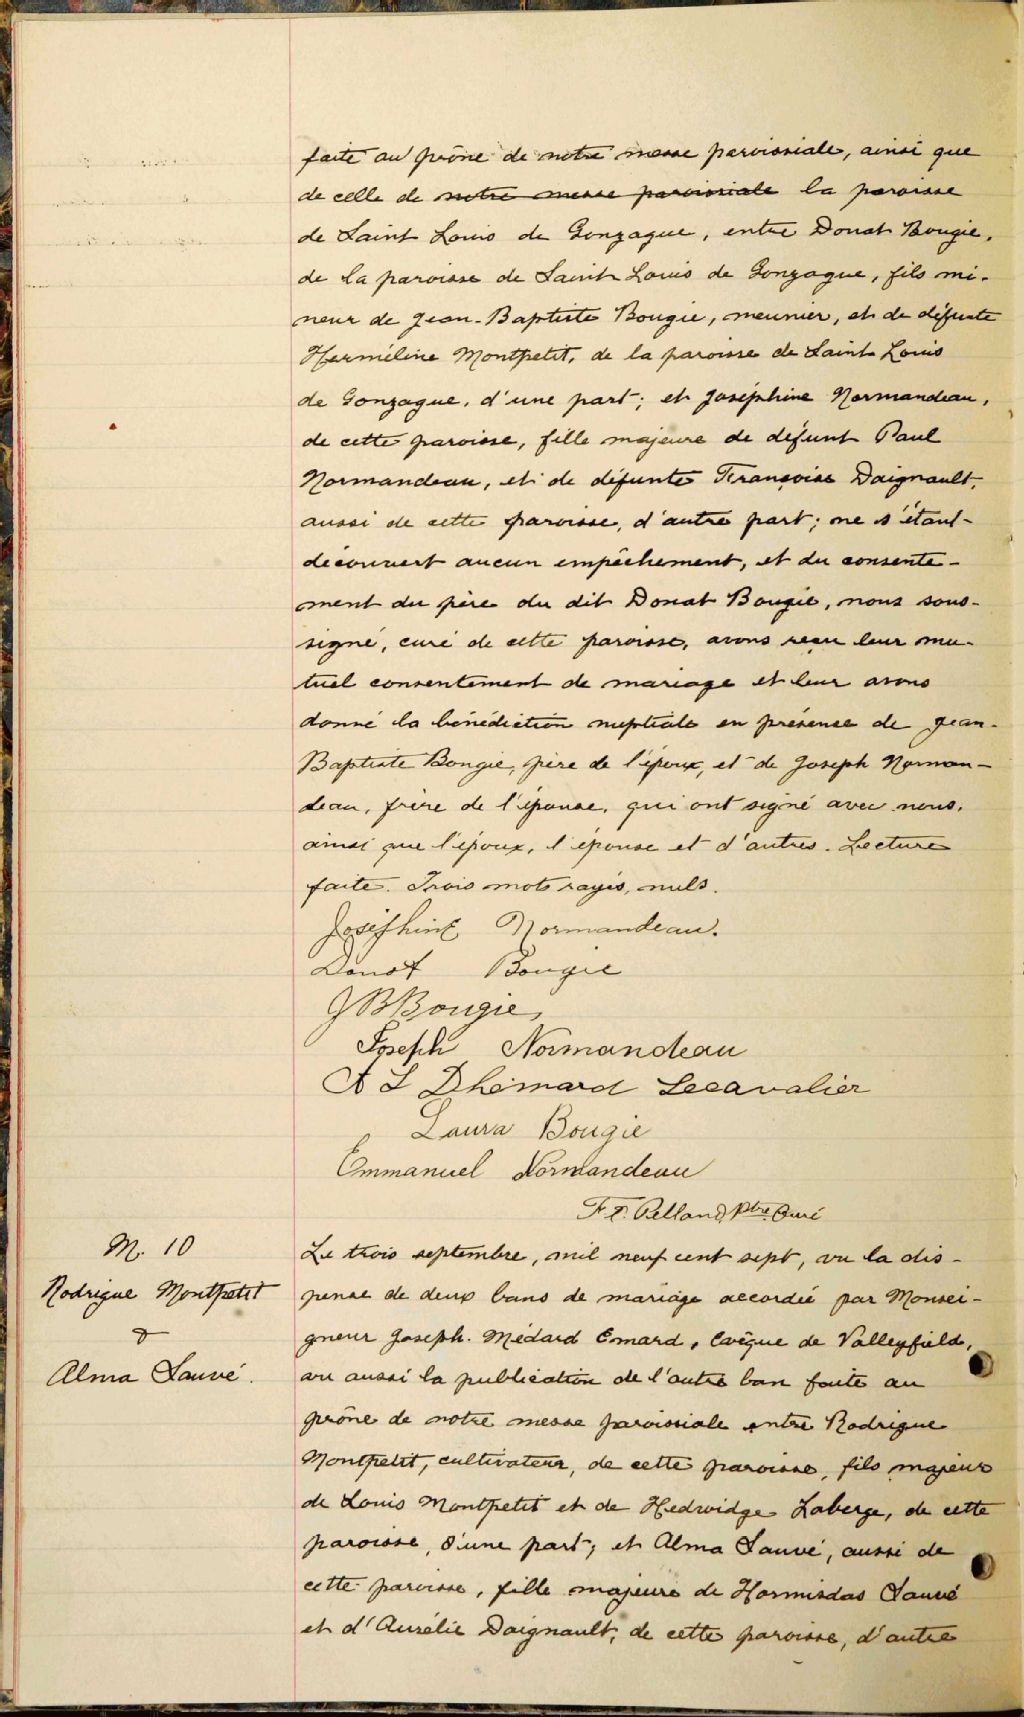 faite au prône de notre messe paroissiale, ainsi que
de celle de notre messe paroissiale la paroisse
de Saint Louis de Gonzague, entre Donat Bougie,
de la paroisse de Saint Louis de Gonzague, fils mi-
neur de Jean-Baptiste Bougie, meunier, et de défunte
Herméline Montpetit, de la paroisse de Saint Louis
de Gonzague, d'une part; et Joséphine Normandeau,
de cette paroisse, fille majeure de défunt Paul
Normandeau, et de défunte Françoise Daignault,
aussi de cette paroisse, d'autre part; ne s'étant
découvert aucun empêchement, et du consente-
ment du père du dit Donat Bougie, nous sous-
signé, curé de cette paroisse, avons reçu leur mu-
tuel consentement de mariage et leur avons
donné la bénédiction nuptiale en présence de Jean-
Baptiste Bougie, père de l'époux, et de Joseph Norman-
deau, frère de l'épouse, qui ont signé avec nous,
ainsi que l'époux, l'épouse et d'autres. Lecture
faite. Trois mots rayés, nuls.
Joséphine Normandeau.
Donat Bougie
J B Bougie,
Joseph Normandeau
A L Dhémard Lecavalier
Laura Bougie
Emmanuel Normandeau
F. X. Pelland, Ptre. Curé
M. 10
Rodrigue Montpetit
&
Alma Sauvé.
Le trois septembre, mil neuf cent sept, vu la dis-
pense de deux bans de mariage accordée par Monsei-
gneur Joseph-Médard Emard, Evêque de Valleyfield,
vu aussi la publication de l'autre ban faite au
prône de notre messe paroissiale entre Rodrigue
Montpetit, cultivateur, de cette paroisse, fils majeur
de Louis Montpetit et de Hedwidge Laberge, de cette
paroisse, d'une part; et Alma Sauvé, aussi de
cette paroisse, fille majeure de Hormisdas Sauvé
et d'Aurélie Daignault, de cette paroisse, d'autre